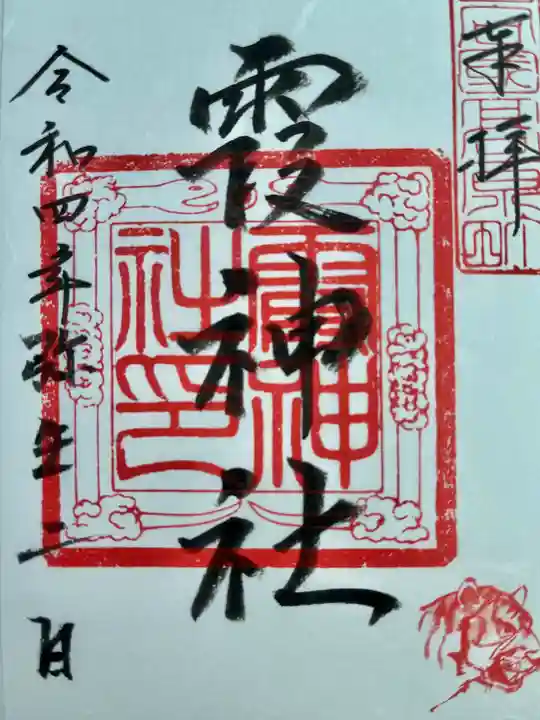 奉拝
霞神社
霞神社印
令和四年弥生二日